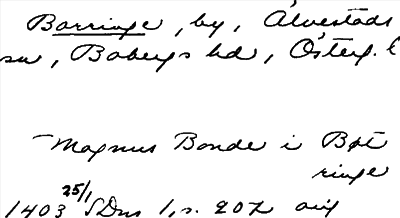 Borringe, by, Älvestads
sn, Bobergs hd, Österg. l
Magnus Bonde i Bøt
ringe
1403 25/1 SDns 1, s. 207 orig